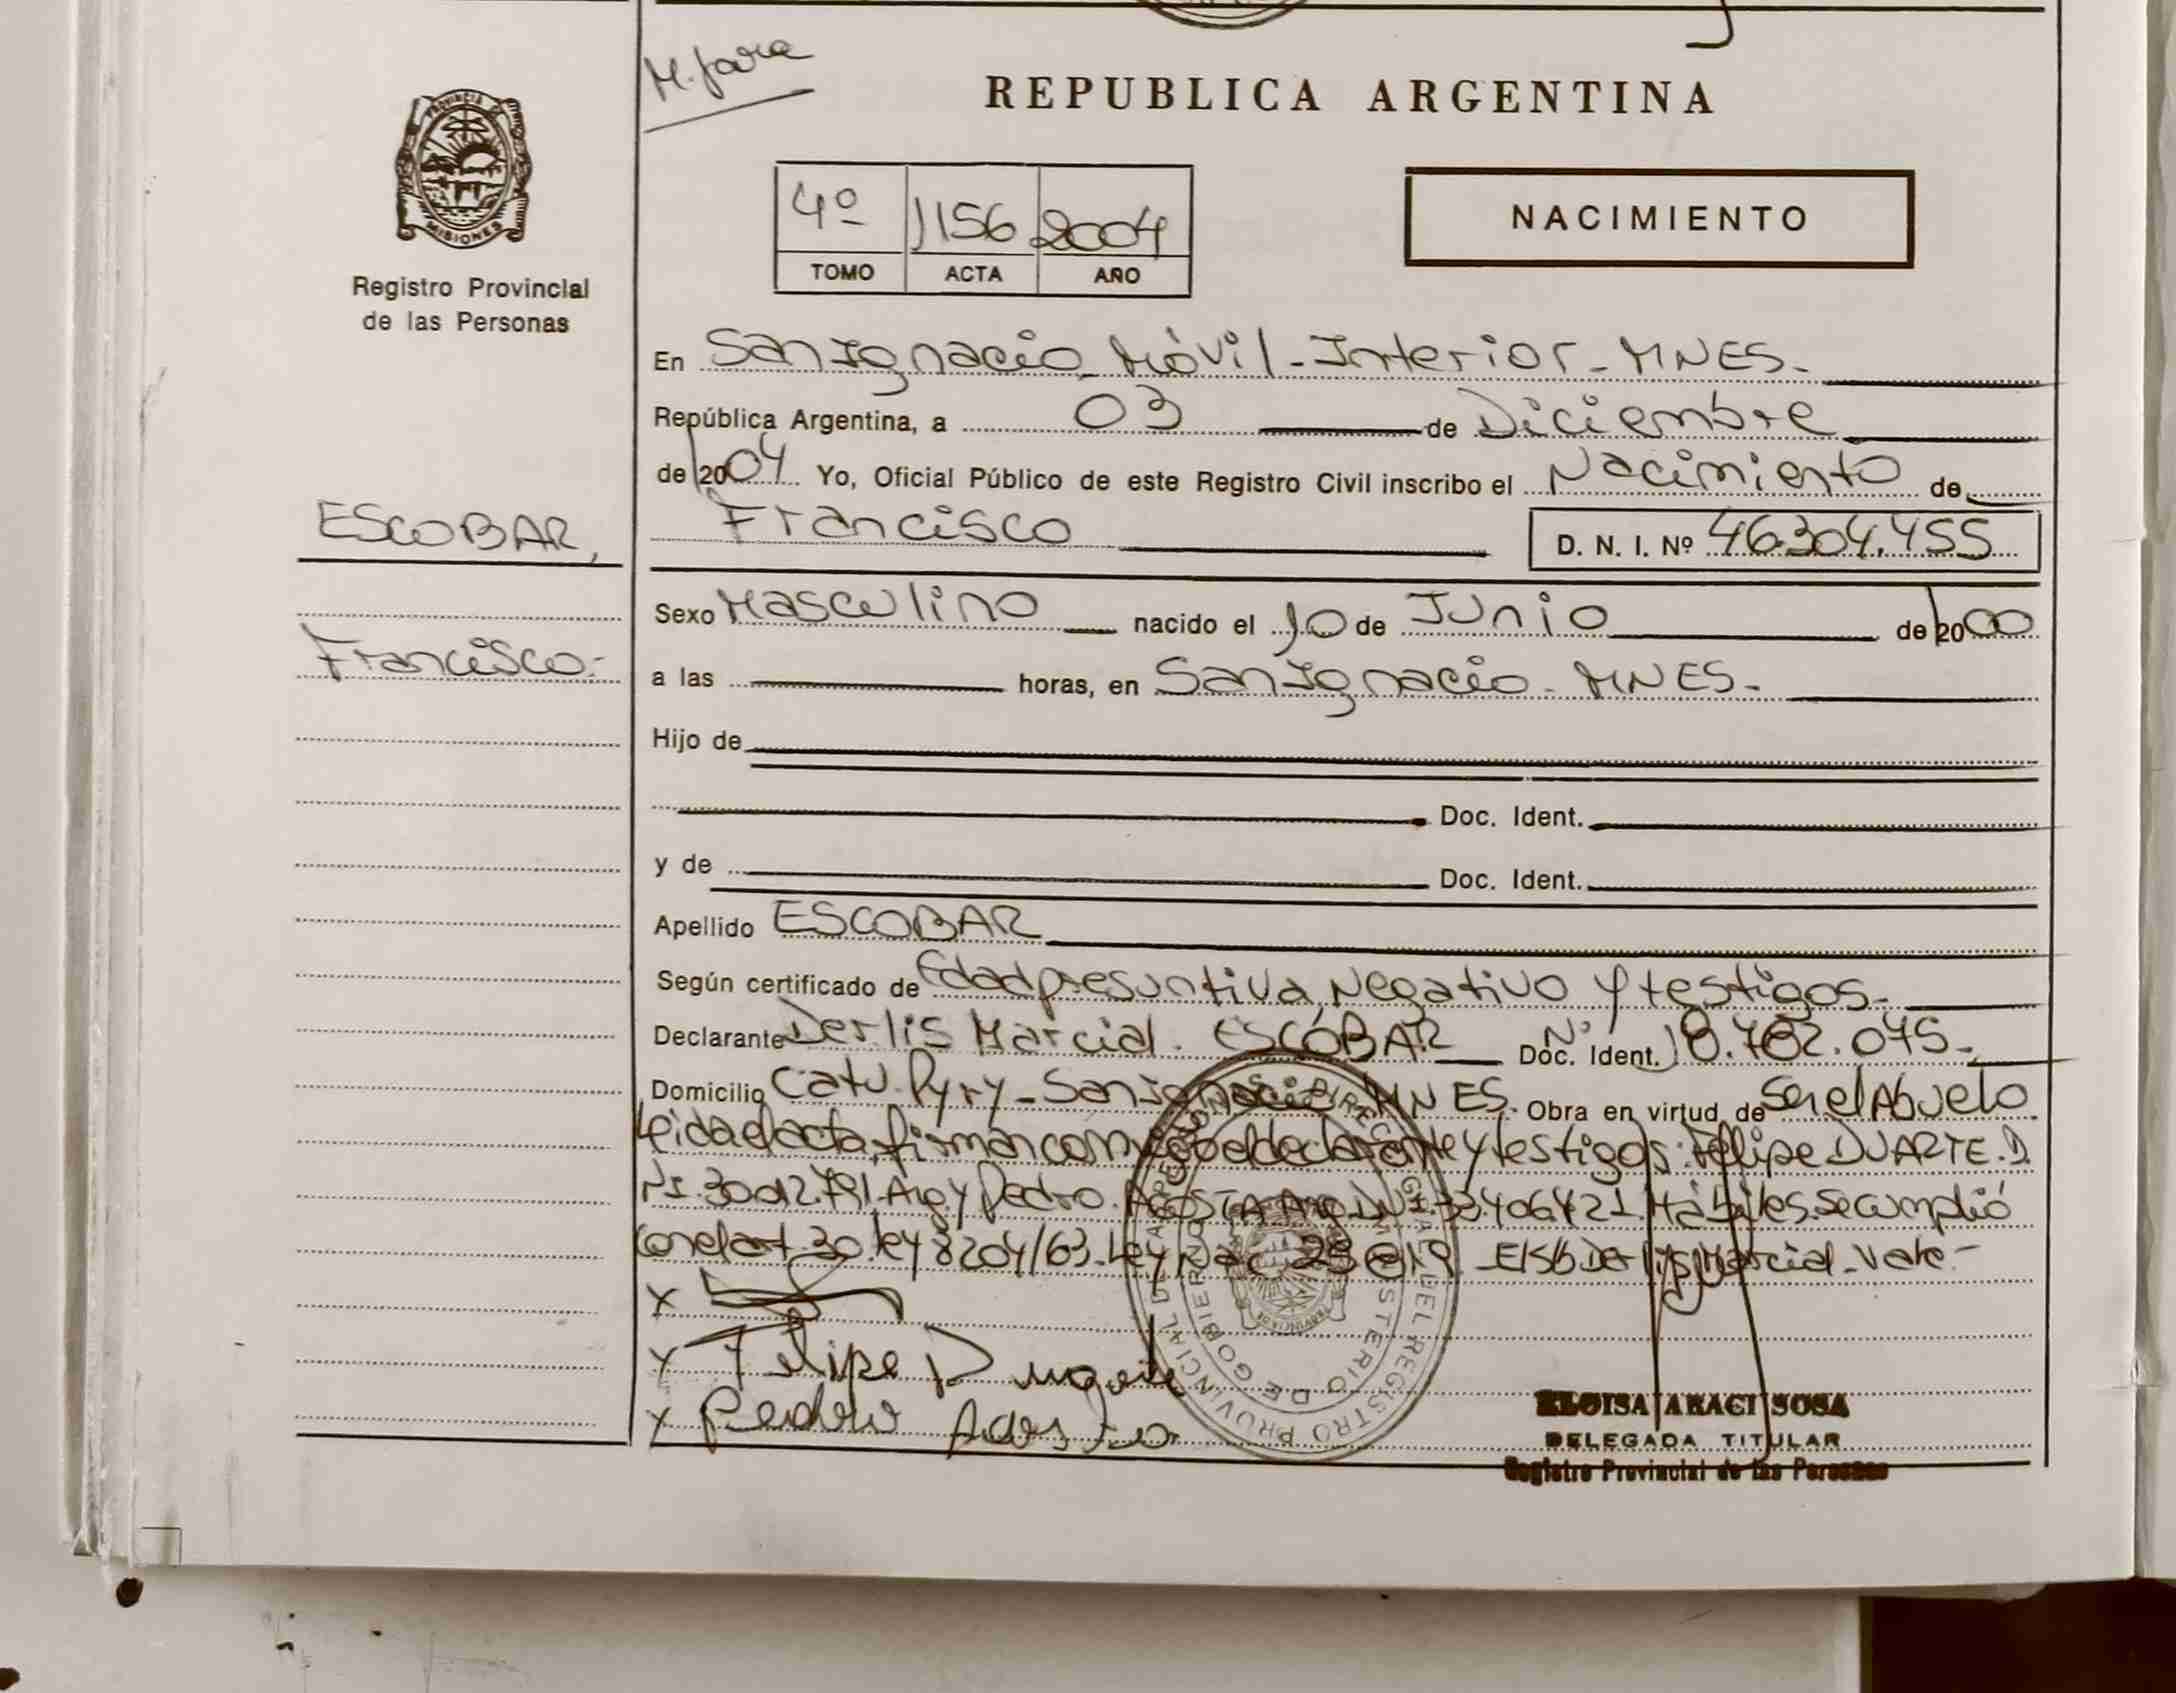 M. Jara
REPUBLICA ARGENTINA
PROVINCIA DE
MISIONES
Registro Provincial
de las Personas
4º 1156 2004
TOMO ACTA AÑO
NACIMIENTO
En San Ignacio Móvil-Interior-MNES-
República Argentina, a 03 de Diciembre
de 2004 Yo, Oficial Público de este Registro Civil inscribo el Nacimiento de
ESCOBAR,
Francisco
D. N. I. Nº 46.304.455
Francisco-
Sexo Masculino nacido el 10 de Junio de 2000
a las horas, en San Ignacio-MNES-
Hijo de
Doc. Ident.
y de Doc. Ident.
Apellido ESCOBAR
Según certificado de Edad presuntiva, Negativo y testigos-
Declarante Derlis Marcial. ESCOBAR Doc. Ident. Nº 18.782.075-
Domicilio Catu-Pyry-San Ignacio MNES. Obra en virtud de Ser el Abuelo
Leida el acta, firman conmigo el declarante y testigos: Felipe DUARTE. D.
NI. 30.012.791-Arg. y Pedro. ACOSTA Arg. DNI. 33.406.421. Hábiles. Se cumplió
con el art. 30. ley 8204/63-Ley Nac E/S/b Derlis Marcial-Vale-
x
x Felipe Duarte
x Pedro Acosta
DIRECCION DEL REGISTRO PROVINCIAL DE LAS PERSONAS
MINISTERIO DE GOBIERNO
ELOISA ARACI SOSA
DELEGADA TITULAR
Registro Provincial de las Personas